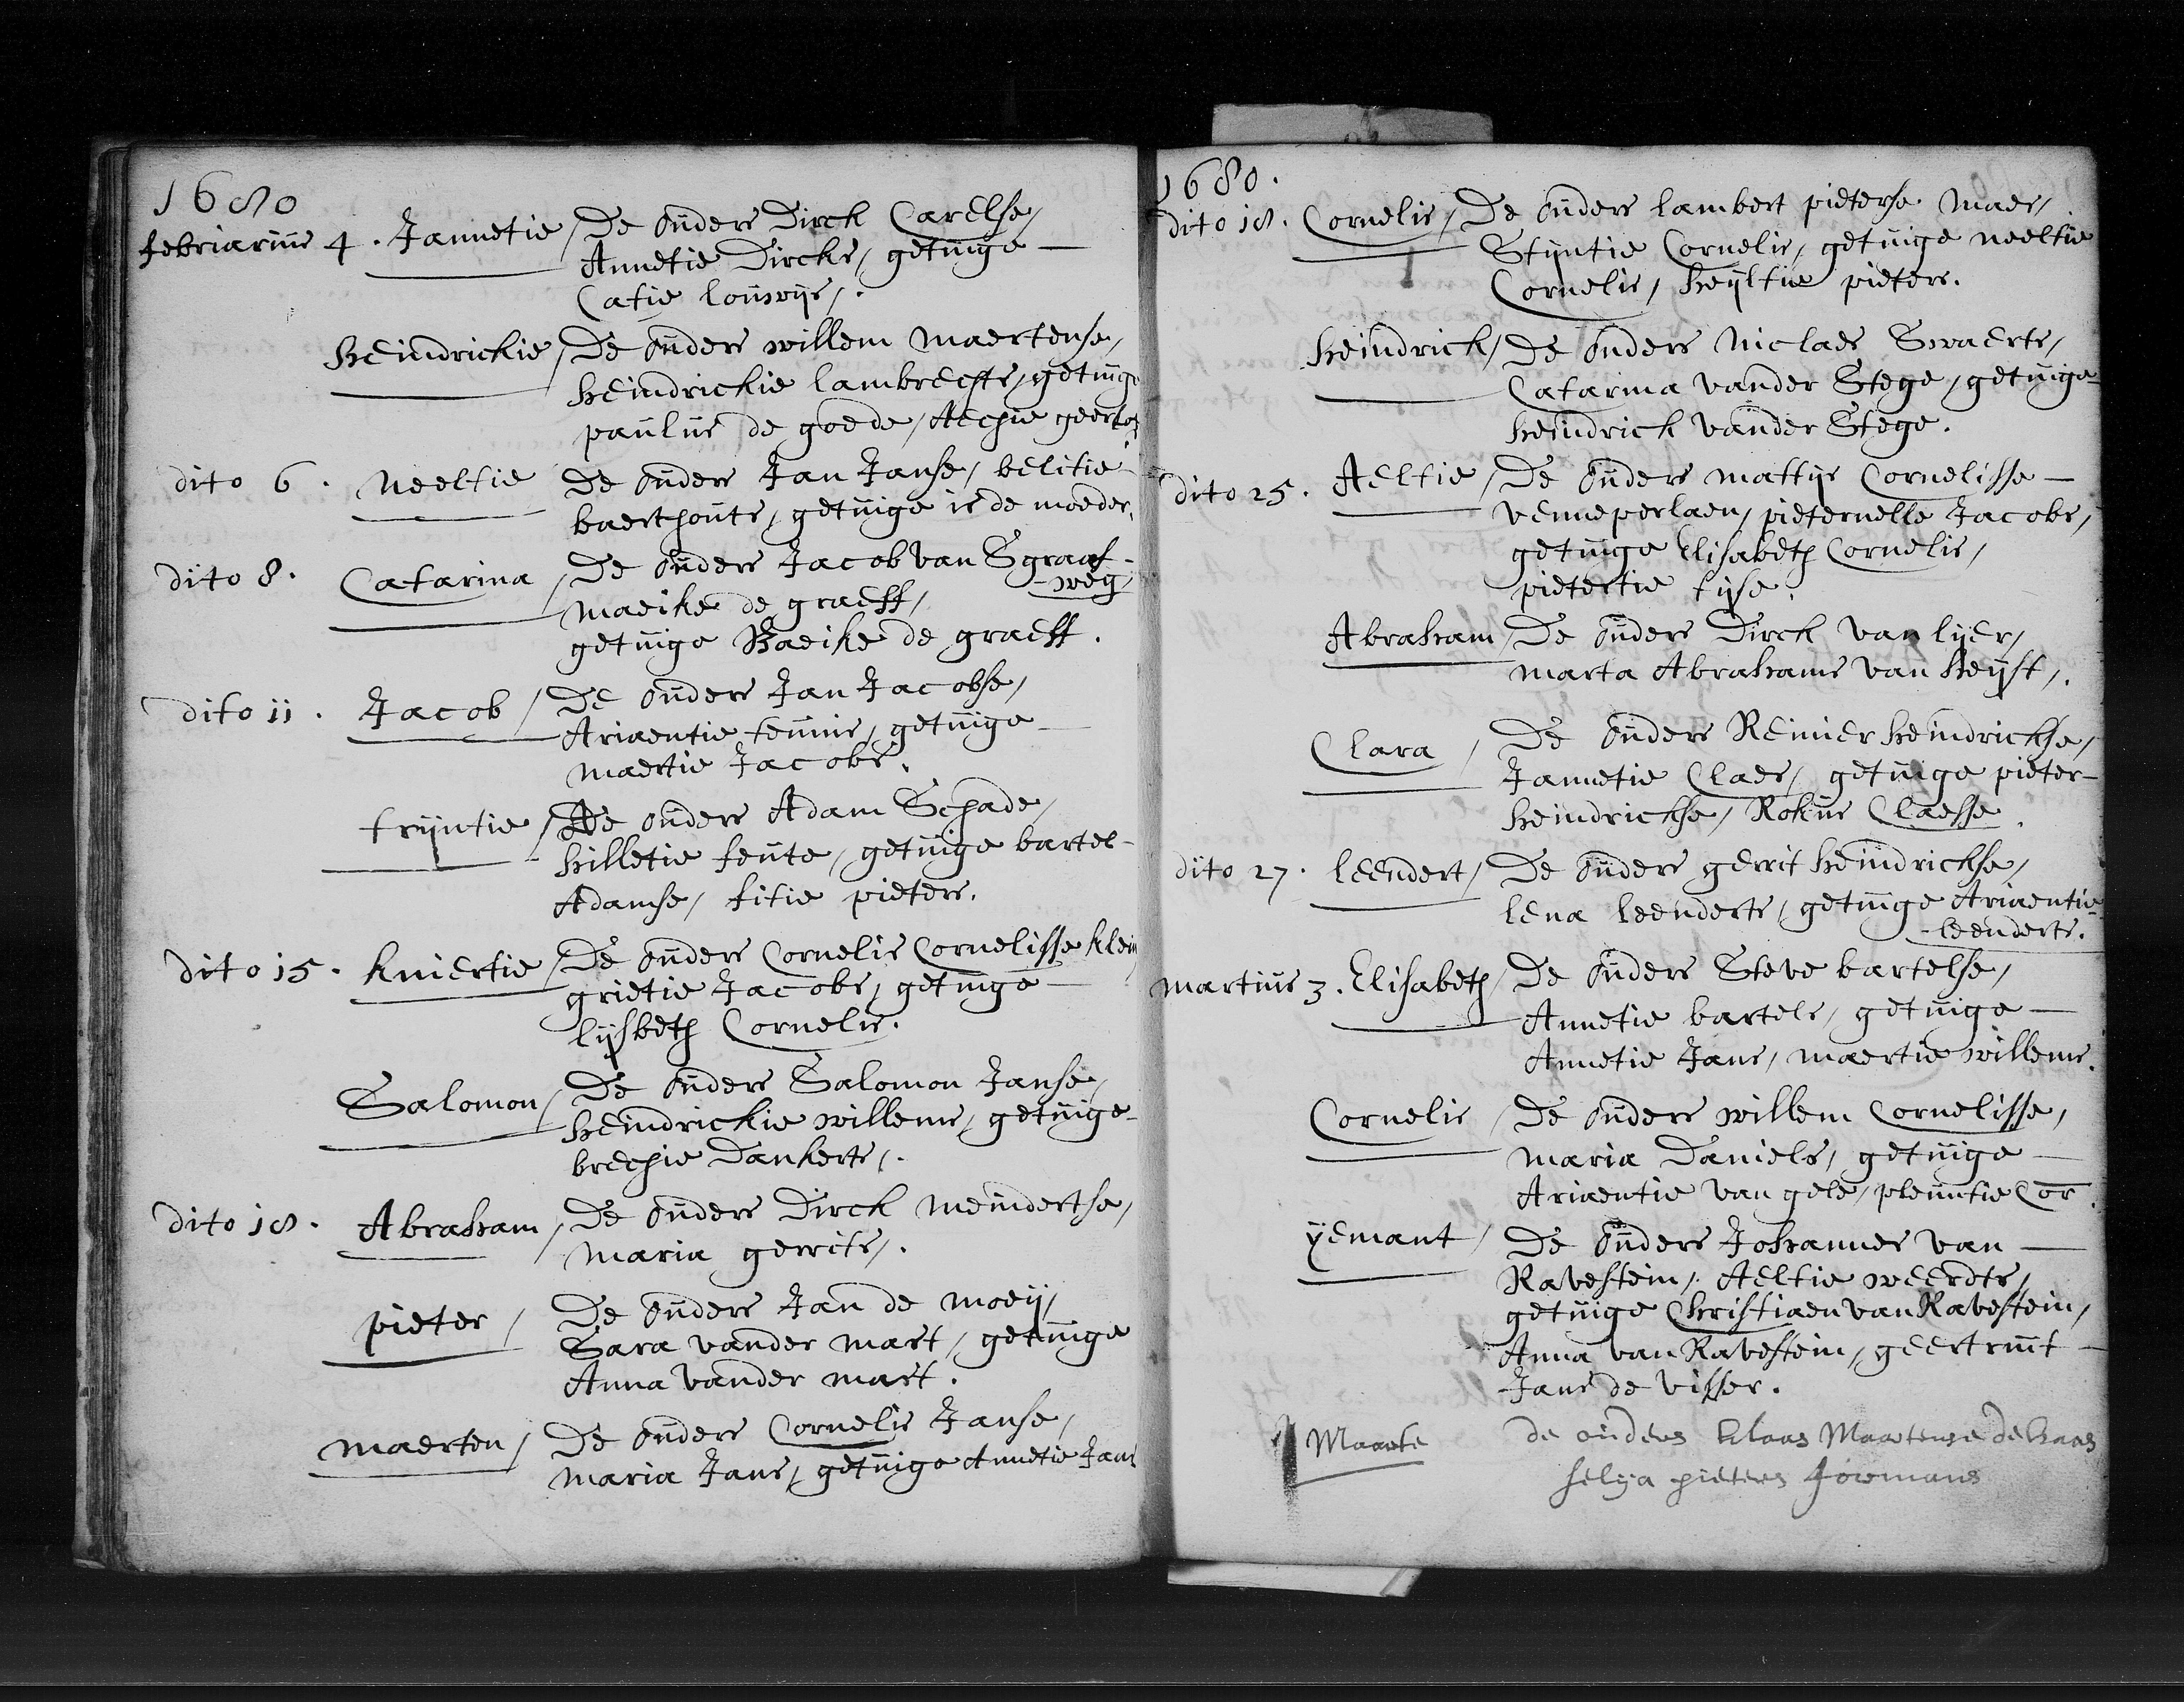 1680
febriarius 4. Jannetie / De ouders Dirck Carelse /
Annetie Dircks / getuige —
Catie louwijs /.
heindrickie / De ouders willem maertense /
heindrickie lambrechts / getuige
paulus de goede / Aechie geerts
dito 6. neeltie De ouders Jan Janse / belitie
baerthouts / getuige is de moeder.
dito 8. Catarina / De ouders Jacob van Sgraef-
weg
maeike de graeff /
getuige Baeike de graeff.
dito 11. Jacob / De ouders Jan Jacobse /
Ariaentie teunis / getuige —
maertie Jacobs.
trijntie / De ouders Adam Schade /
hilletie feute / getuige bartel-
Adamse / fitie pieters.
dito 15. kniertie / De ouders Cornelis Cornelisse klein
grietie Jacobs / getuige —
lijsbeth Cornelis.
Salomon / De ouders Salomon Janse /
heindrickie willems / getuige-
brechie Dankerts /.
dito 18. Abraham / De ouders Dirck meindertse /
maria gerrits /.
pieter / De ouders Jan de moeij /
Sara vander mast / getuige
Anna vander mast.
maerten / De ouders Cornelis Janse /
maria Jans / getuige Annetie Jans
1680.
dito 18. Cornelis / De ouders lambert pieterse maes /
Stijntie Cornelis / getuige neeltie
Cornelis / heijltie pieters.
heindrick / De ouders Niclaes Swaerts /
Catarina vander Stege / getuige-
heindrick vander Stege.
dito 25. Aeltie / De ouders mattijs Cornelisse —
venneperlaen / pieternelle Jacobs /
getuige Elisabeth Cornelis /
pietertie tijse.
Abraham / De ouders Dirck van lijer /
marta Abrahams van heijst /.
Clara / De ouders Reinier heindrickse /
Jannetie Claes / getuige pieter-
heindrickse / Rokus Claesse.
dito 27. leendert / De ouders gerrit heindrickse /
lena leenderts / getuige Ariaentie
leenderts.
martius 3. Elisabeth / De ouders Steve bartelse /
Annetie bartels / getuige —
Annetie Jans / maertie willems.
Cornelis / De ouders willem Cornelisse /
maria Daniels / getuige —
Ariaentie van gele / pleuntie Cor.
yemant / De ouders Johannes van —
Ravestein /. Aeltie weerdts /
getuige Christiaen van Ravestein /
Anna van Ravestein / geertruit —
Jans de visser.
Maarte de ouders klaas Maartense de haas
selija pieters